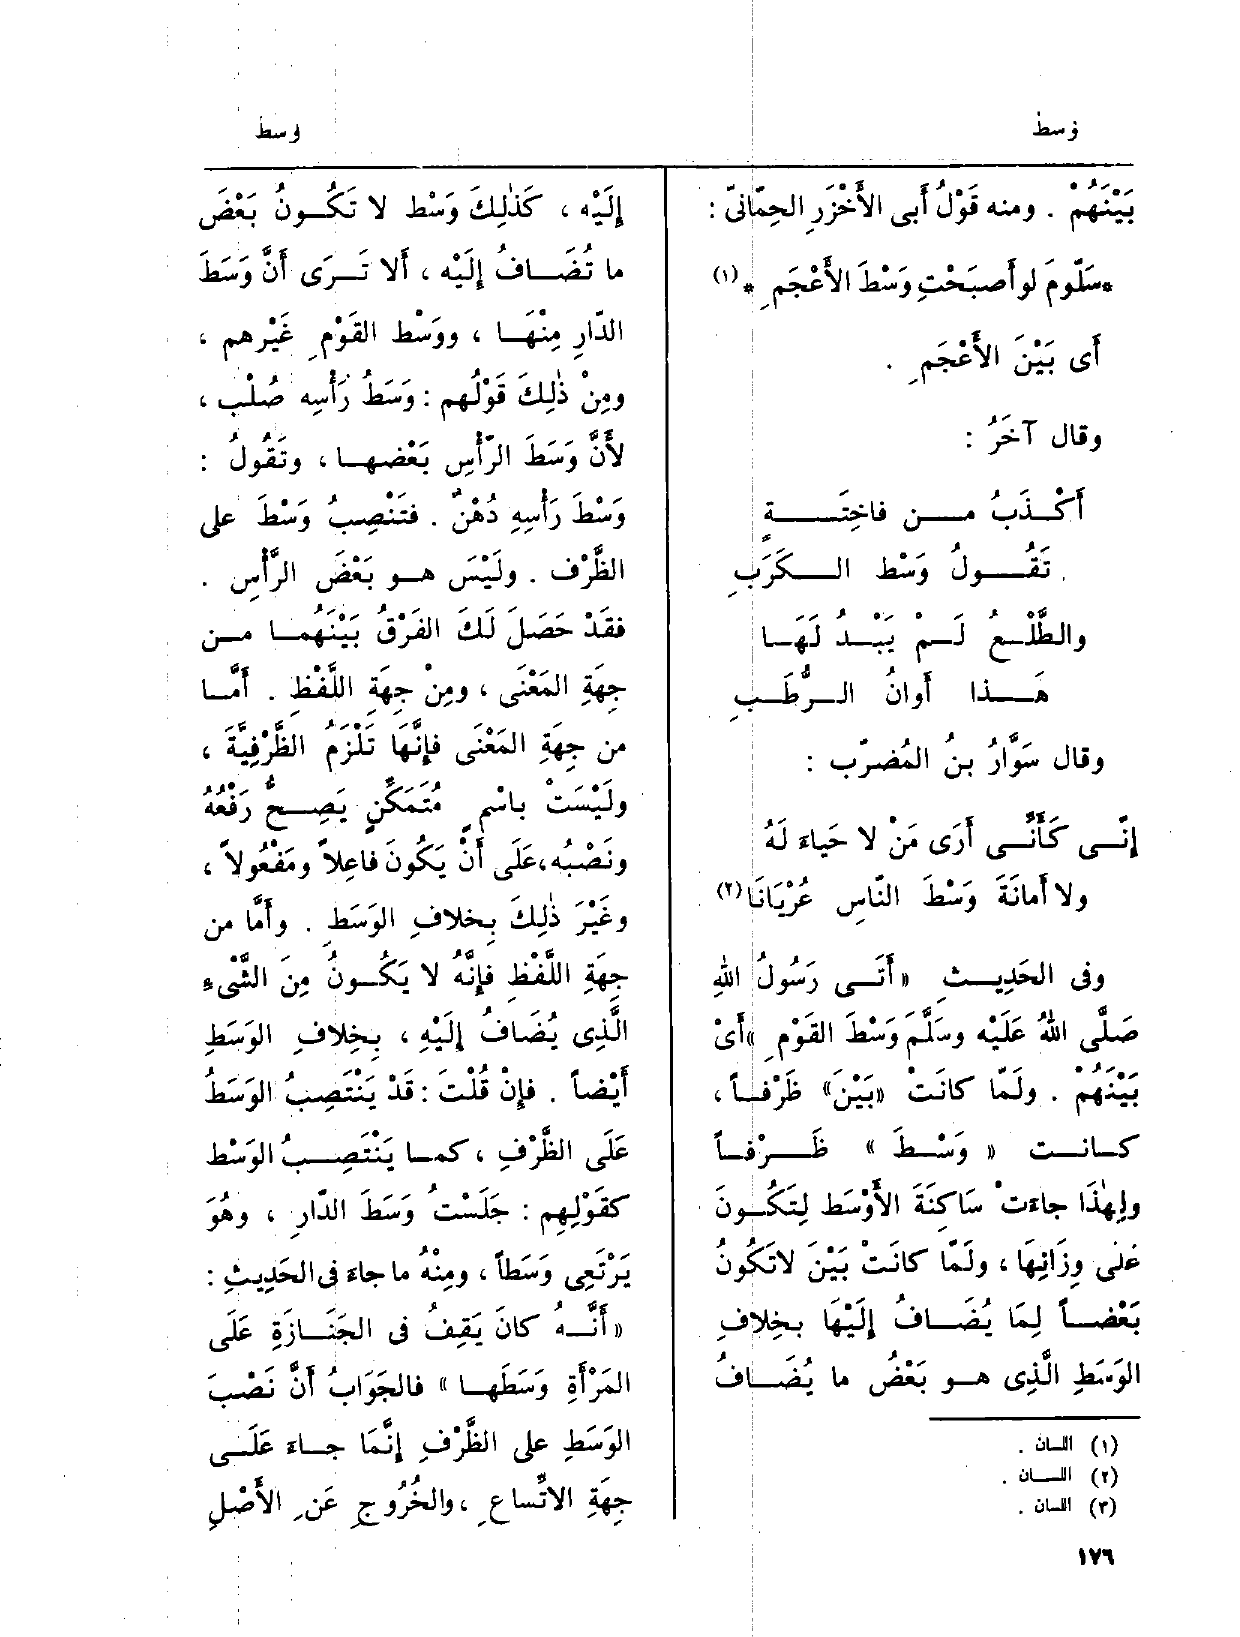 وسط
وسط
بَيْنَهُمْ . ومنه قَوْلُ أَبى الأَخْزَرِ الحِمّانىّ :
*سَلّومَ لو أَصبَحْتِ وَسْطَ الأَعْجَمِ * (١)
أَى بَيْنَ الأَعْجَمِ .
وقال آخَرُ :
أَكْـذَبُ مـــن فاخِتَـــــةٍ
تَقُـــولُ وَسْطَ الـــكَرَبِ
والطَّلْـعُ لَـــمْ يَبْـــدُ لَهَـــا
هَـــــذا أَوانُ الـــرُّطَـــبِ
وقال سَوَّارُ بنُ المُضرّب :
إِنّـــى كَأَنَّـــى أَرَى مَنْ لا حَياءَ لَهُ
ولا أَمانَةَ وَسْطَ النّاسِ عُرْيَانَا (٢)
وفى الحَدِيـــثِ «أَتَـــى رَسُولُ اللهِ
صَلَّى اللهُ عَلَيْه وسَلَّمَ وَسْطَ القَوْمِ »أَىْ
بَيْنَهُمْ . ولَمّا كانَتْ «بَيْنَ» ظَرْفـــاً ،
كـــانـــت « وَسْـــطَ » ظَـــرْفـــاً
ولِهٰذَا جاءَتْ سَاكِنَةَ الأَوْسَطِ لِتَكُـــونَ
عَلَى وِزَانِهَا ، ولَمّا كانَتْ بَيْنَ لاتَكُونُ
بَعْضـــاً لِمَا يُضَـــافُ إِلَيْهَا بـخِلافِ
الوَسَطِ الَّذِى هـــو بَعْضُ ما يُضَـــافُ
(١) اللسان .
(٢) اللســـان .
(٣) اللسان .
١٧٦
إِلَيْه ، كَذٰلِكَ وَسْط لا تَكُـــونُ بَعْضَ
ما تُضَـــافُ إِلَيْه ، أَلا تَـــرَى أَنَّ وَسَطَ
الدّارِ مِنْهَـــا ، ووَسْط القَوْمِ غَيْرهم ،
ومِنْ ذٰلِكَ قَوْلُهم : وَسَطُ رَأْسِه صُلْب ،
لأَنَّ وَسَطَ الرّأْسِ بَعْضهـــا ، وتَقُولُ :
وَسْطَ رَأْسِهِ دُهْنٌ . فتَنْصِبُ وَسْطَ على
الظَّرْف . ولَيْسَ هـــو بَعْضَ الرَّأْس .
فقَدْ حَصَلَ لَكَ الفَرْقُ بَيْنَهُمـــا مـــن
جِهَةِ المَعْنَى ، ومِنْ جِهَةِ اللَّفْظِ . أَمَّـــا
من جِهَةِ المَعْنَى فإِنَّهَا تَلْزَمُ الظَّرْفِيَّةَ ،
ولَيْسَتْ باسْمٍ مُتَمَكِّنٍ يَصِـــحُّ رَفْعُهُ
ونَصْبُه،عَلَى أَنْ يَكُونَ فاعِلاً ومَفْعُولاً ،
وغَيْرَ ذٰلِكَ بـخلافِ الوَسَطِ . وأَمَّا من
جِهَةِ اللَّفْظِ فإِنَّهُ لا يَكُـــونُ مِنَ الشَّىْءِ
الَّذِى يُضَافُ إِلَيْهِ ، بـخِلافِ الوَسَطِ
أَيْضاً . فإِنْ قُلْتَ : قَدْ يَنْتَصِبُ الوَسَطُ
عَلَى الظَّرْفِ ، كمـــا يَنْتَصِـــبُ الوَسْط
كقَوْلِهِم : جَلَسْتُ وَسَطَ الدّارِ ، وهُوَ
يَرْتَعِى وَسَطاً ، ومِنْهُ ما جاءَ فى الحَدِيثِ :
«أَنَّـــهُ كانَ يَقِفُ فى الجَنَـــازَةِ عَلَى
المَرْأَةِ وَسَطَهـــا » فالجَوَابُ أَنَّ نَصْبَ
الوَسَطِ على الظَّرْفِ إِنَّمَا جـــاءَ عَلَـــى
جِهَةِ الاتّساعِ ، والخُرُوجِ عَنِ الأَصْلِ